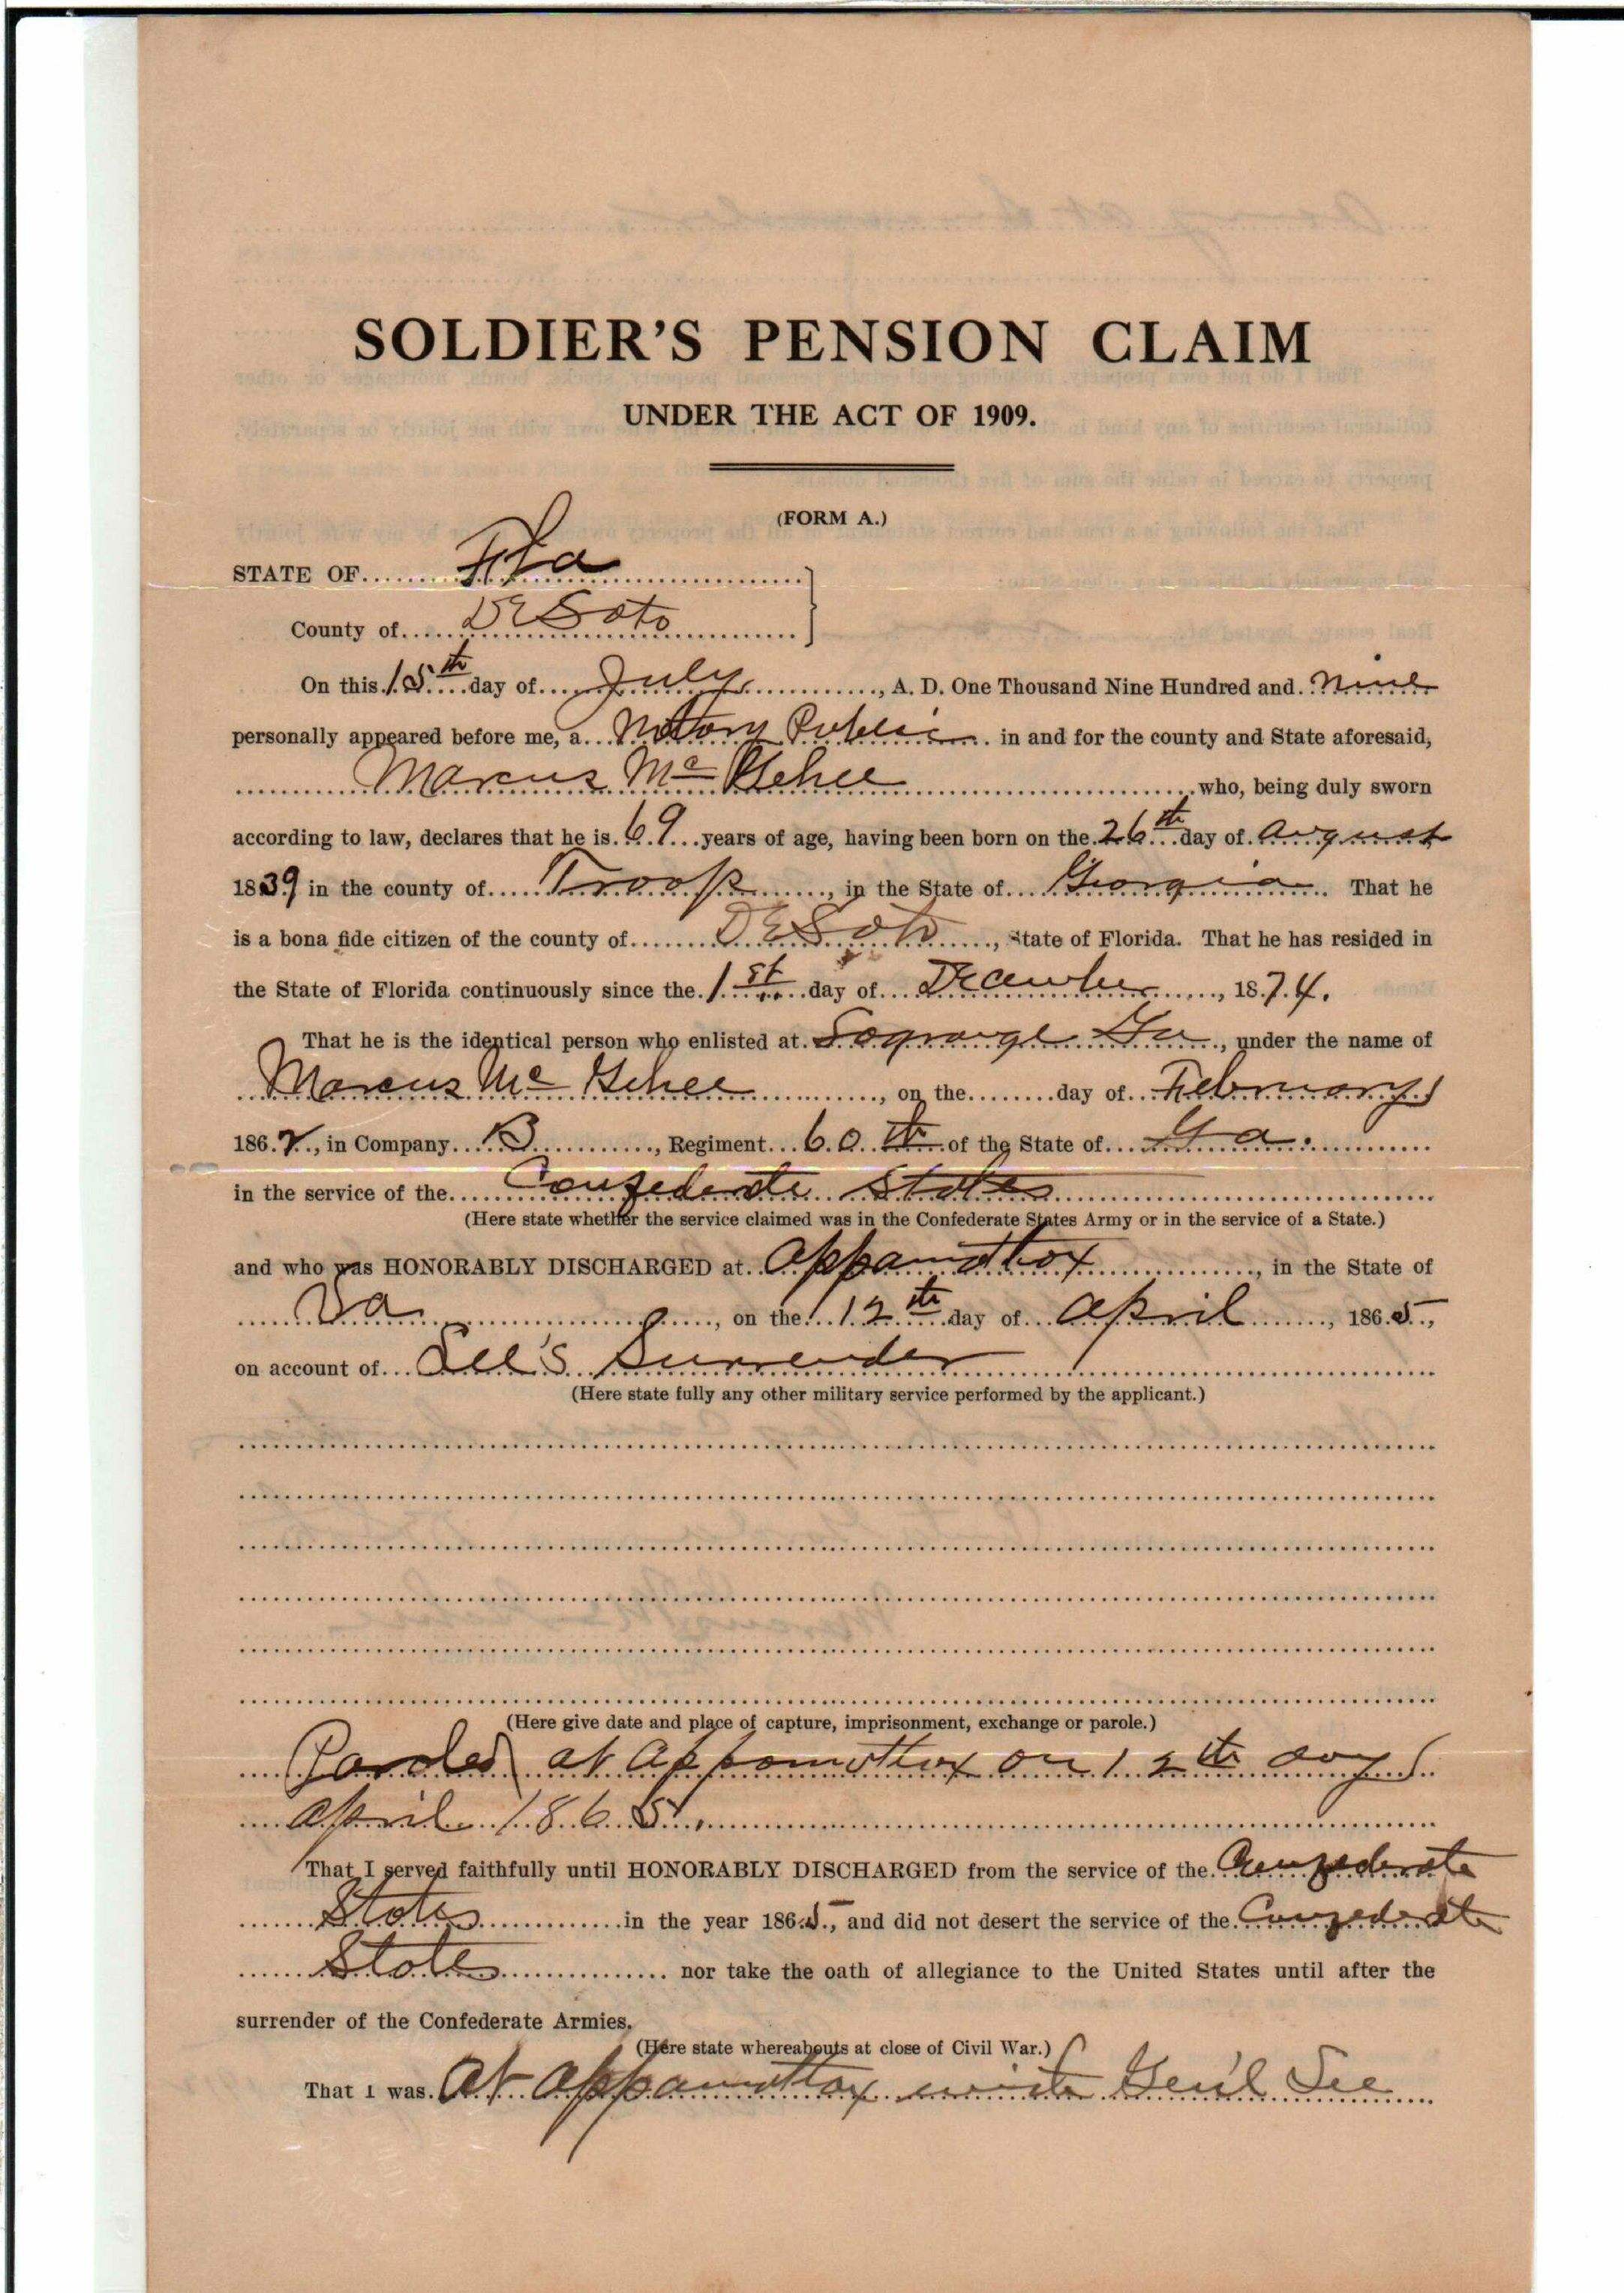 SOLDIER'S PENSION CLAIM
UNDER THE ACT OF 1909.
(FORM A.)
STATE OF Fla
County of DeSoto
On this 15th day of July, A. D. One Thousand Nine Hundred and nine
personally appeared before me, a Notary Public in and for the county and State aforesaid,
Marcus McGehee who, being duly sworn
according to law, declares that he is 69 years of age, having been born on the 26th day of August
1839 in the county of Troop, in the State of Georgia. That he
is a bona fide citizen of the county of DeSoto, State of Florida. That he has resided in
the State of Florida continuously since the 1st day of December, 1874.
That he is the identical person who enlisted at Ga, under the name of
Marcus McGehee, on the day of February
1862, in Company B, Regiment 60th of the State of Ga.
in the service of the Confederate States
(Here state whether the service claimed was in the Confederate States Army or in the service of a State.)
and who was HONORABLY DISCHARGED at Appamattox, in the State of
Va, on the 12th day of April, 1865,
on account of Lee's Surrender
(Here state fully any other military service performed by the applicant.)
(Here give date and place of capture, imprisonment, exchange or parole.)
Paroled at Appomattox on 12th day
April 1865.
That I served faithfully until HONORABLY DISCHARGED from the service of the Confederate
States in the year 1865, and did not desert the service of the Confederate
States nor take the oath of allegiance to the United States until after the
surrender of the Confederate Armies.
(Here state whereabouts at close of Civil War.)
That I was At Appamattox with Gen'l Lee